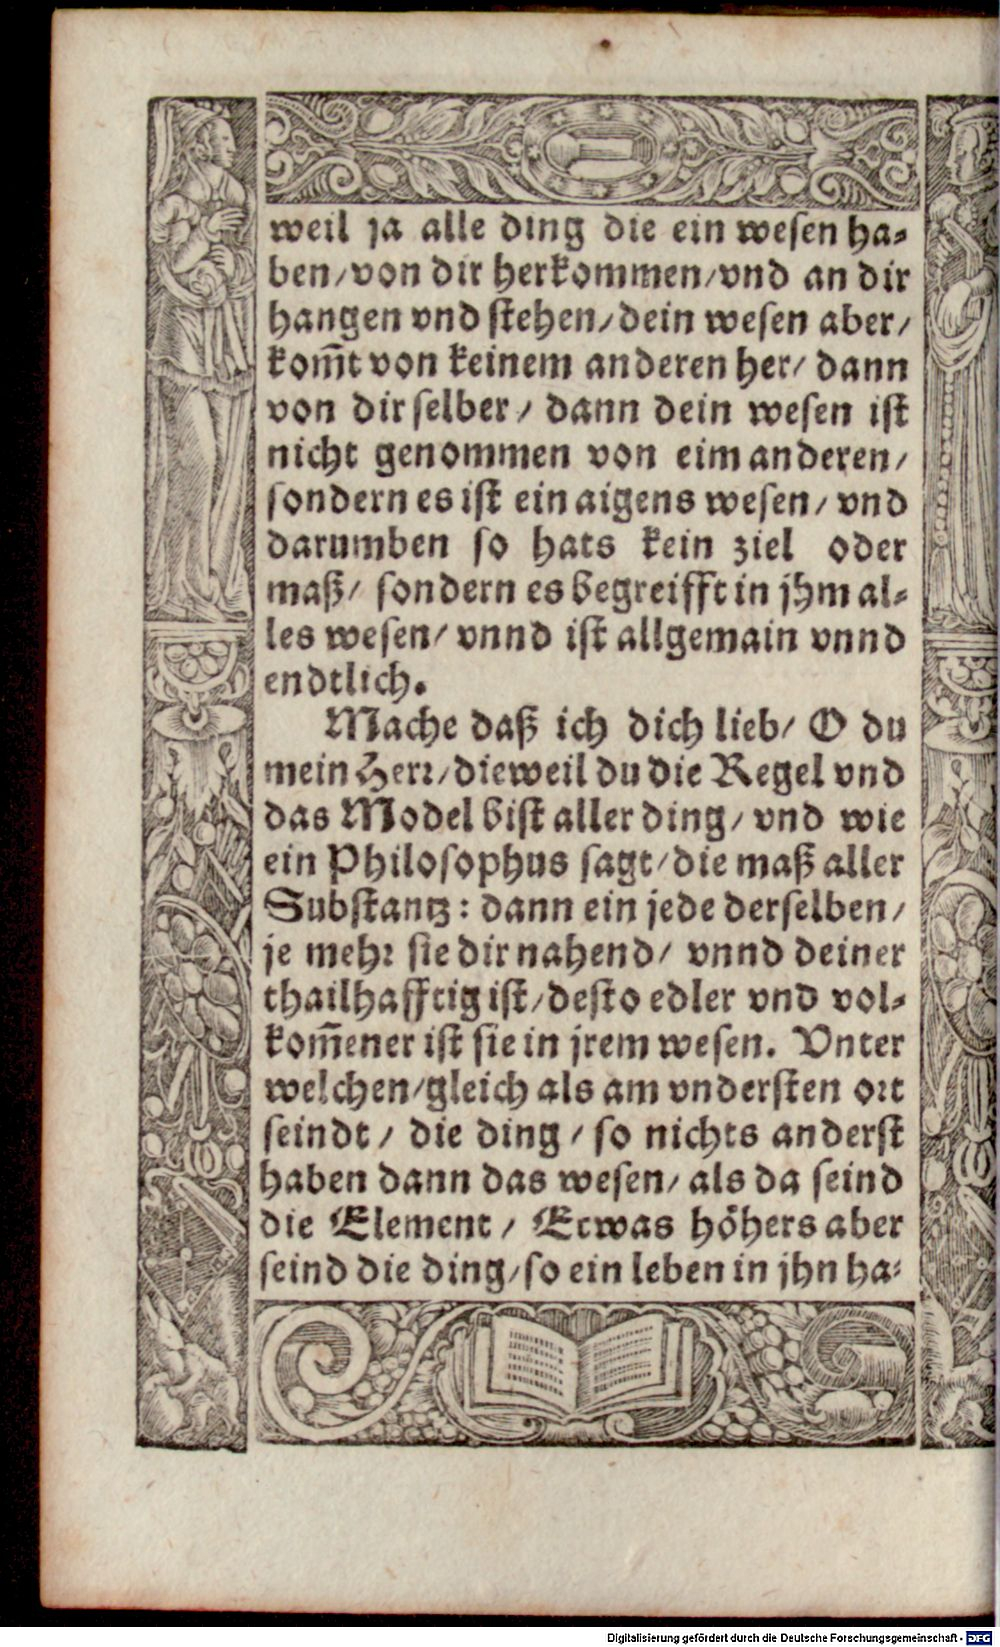 weil ja alle ding die ein wesen ha⸗
ben/von dir herkommen/vnd an dir
hangen vnd stehen/dein wesen aber/
kom̃t von keinem anderen her/ dann
von dir selber/ dann dein wesen ist
nicht genommen von eim anderen/
sondern es ist ein aigens wesen/ vnd
darumben so hats kein ziel oder
maß/ sondern es begreifft in jhm al⸗
les wesen/ vnnd ist allgemain vnnd
endtlich.
Mache daß ich dich lieb/ O du
mein Herr/dieweil du die Regel vnd
das Model bist aller ding/ vnd wie
ein Philosophus sagt/die maß aller
Substantz: dann ein jede derselben/
je mehr sie dir nahend/ vnnd deiner
thailhafftig ist/desto edler vnd vol⸗
kom̃ener ist sie in jrem wesen. Vnter
welchen/gleich als am vndersten ort
seindt/ die ding/ so nichts anderst
haben dann das wesen/ als da seind
die Element/ Etwas höhers aber
seind die ding/so ein leben in jhn ha⸗
Digitalisierung gefördert durch die Deutsche Forschungsgemeinschaft - DFG